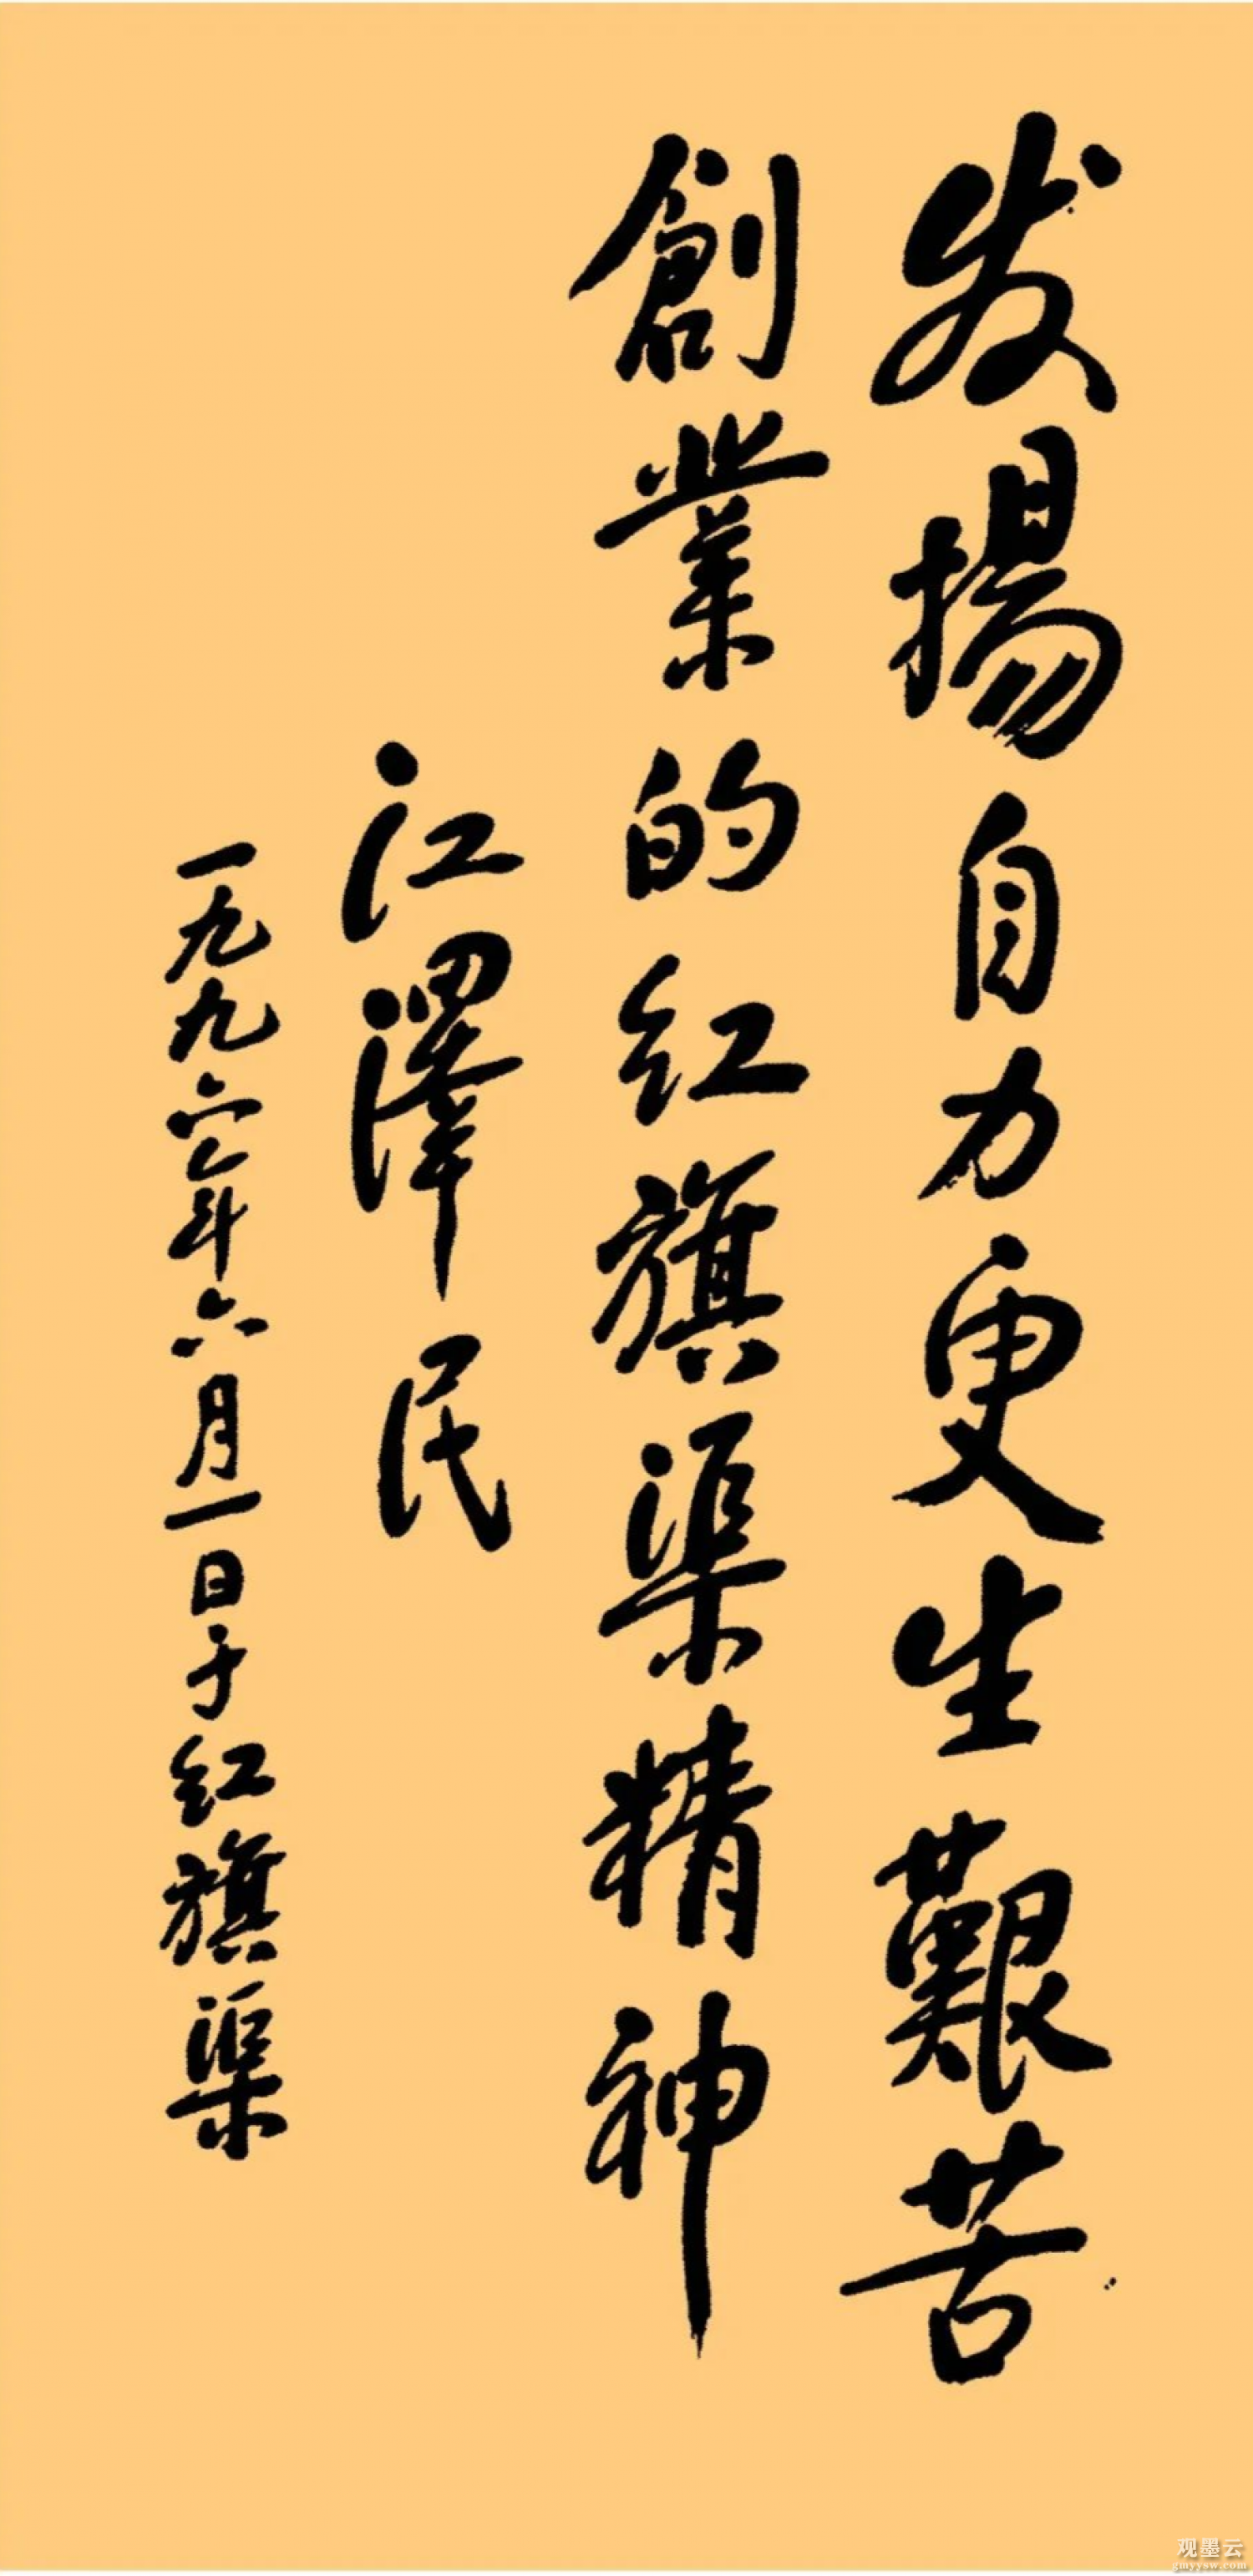 发揚自力更生艱苦
創業的红旗渠精神
江澤民
一九九六年六月一日于红旗渠
观墨云
gmyysw.com